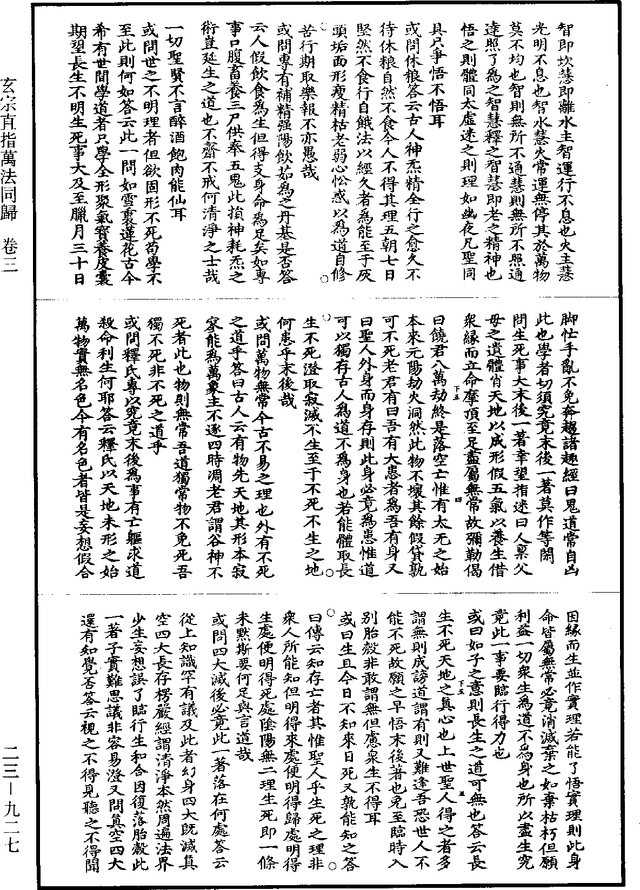 玄宗直指萬法同歸　卷三
二三—九二七
智即坎慧即離水主智運行不息也火主慧
光明不息也智水慧火常運無停其於萬物
莫不均也智則無所不通慧則無所不照通
達照了爲之智慧釋之智慧即老之精神也
悟之則體同太虛迷之則理如幽夜凡聖同
具只爭悟不悟耳
或問休粮答云古人神炁精全行之愈久不
待休粮自然不食今人不得其理五朝七日
堅然不食行自餓法以經久者爲能至于灰
頭垢面形瘦精枯老弱心忪惑以爲道自修
苦行期取樂報不亦愚哉
或問專有補精强陽飲如爲之丹基是否答
云人假飲食爲生但得支身命爲足矣如專
事口腹畜養三尸供奉五鬼此損神耗炁之
術豈延生之道也不齋不戒何清淨之士哉
一切聖賢不言醉酒飽肉能仙耳
或問世之不明理者但欲固形不死苟學不
至此則何如答云此一問如雪裏蓮花古今
希有世間學道者只學全形聚氣寶養皮囊
期望長生不明生死事大及至臘月三十日
脚忙手亂不免奔趨諸趣經曰鬼道常自凶
此也學者切須究竟末後一著莫作等閑
問生死事大末後一著幸望指迷曰人稟父
母之遺體肖天地以成形假五氣以養生借
衆緣而立命摩頂至足盡屬無常故彌勒偈
曰饒君八萬劫終是落空亡惟有太无之始
本來元陽劫火洞然此物不壞其餘假貸孰
可不死老君有曰吾有大患者爲吾有身又
曰聖人外身而身存則此身必竟爲患惟道
可以獨存古人爲道不爲身也若能體取長
生不死澄取寂滅不生至于不死不生之地
何患乎末後哉
或問萬物無常今古不易之理也外有不死
之道乎答曰古人云有物先天地其形本寂
寥能爲萬象主不逐四時凋老君謂谷神不
死者此也物則無常吾道獨常物不免死吾
獨不死非不死之道乎
或問釋氏專以究竟末後爲事有亡軀求道
殺命利生何耶答云釋氏以天地未形之始
萬物實無名色今有名色者皆是妄想假合
因緣而生並作實理若能了悟實理則此身
命皆屬無常必竟消滅棄之如棄枯朽但願
利益一切衆生爲道不爲身也所以盡生究
竟此一事要臨行得力也
或曰如子之意則長生之道可無也答云長
生不死天地之真心也上世聖人得之者多
謂無則成謗道謂有則又難逢吾恐世人不
能不死故願之早悟末後著也免至臨時入
別胎殼非敢謂無但慮衆生不得耳
或曰生且今日不知來日死又孰能知之答
曰傳云知存亡者其惟聖人乎生死之理非
衆人所能知但明得來處便明得歸處明得
生處便明得死處陰陽無二理生死即一條
未黙斯要何足與言道哉
或問四大滅後必竟此一著落在何處答云
從上知識罕有議及此者幻身四大既滅真
空四大長存楞嚴經謂清淨本然周遍法界
少生妄想誤了臨行生和合因復落胎殼此
一著子實難思議非容易澄又問真空四大
還有知覺否答云視之不得見聽之不得聞